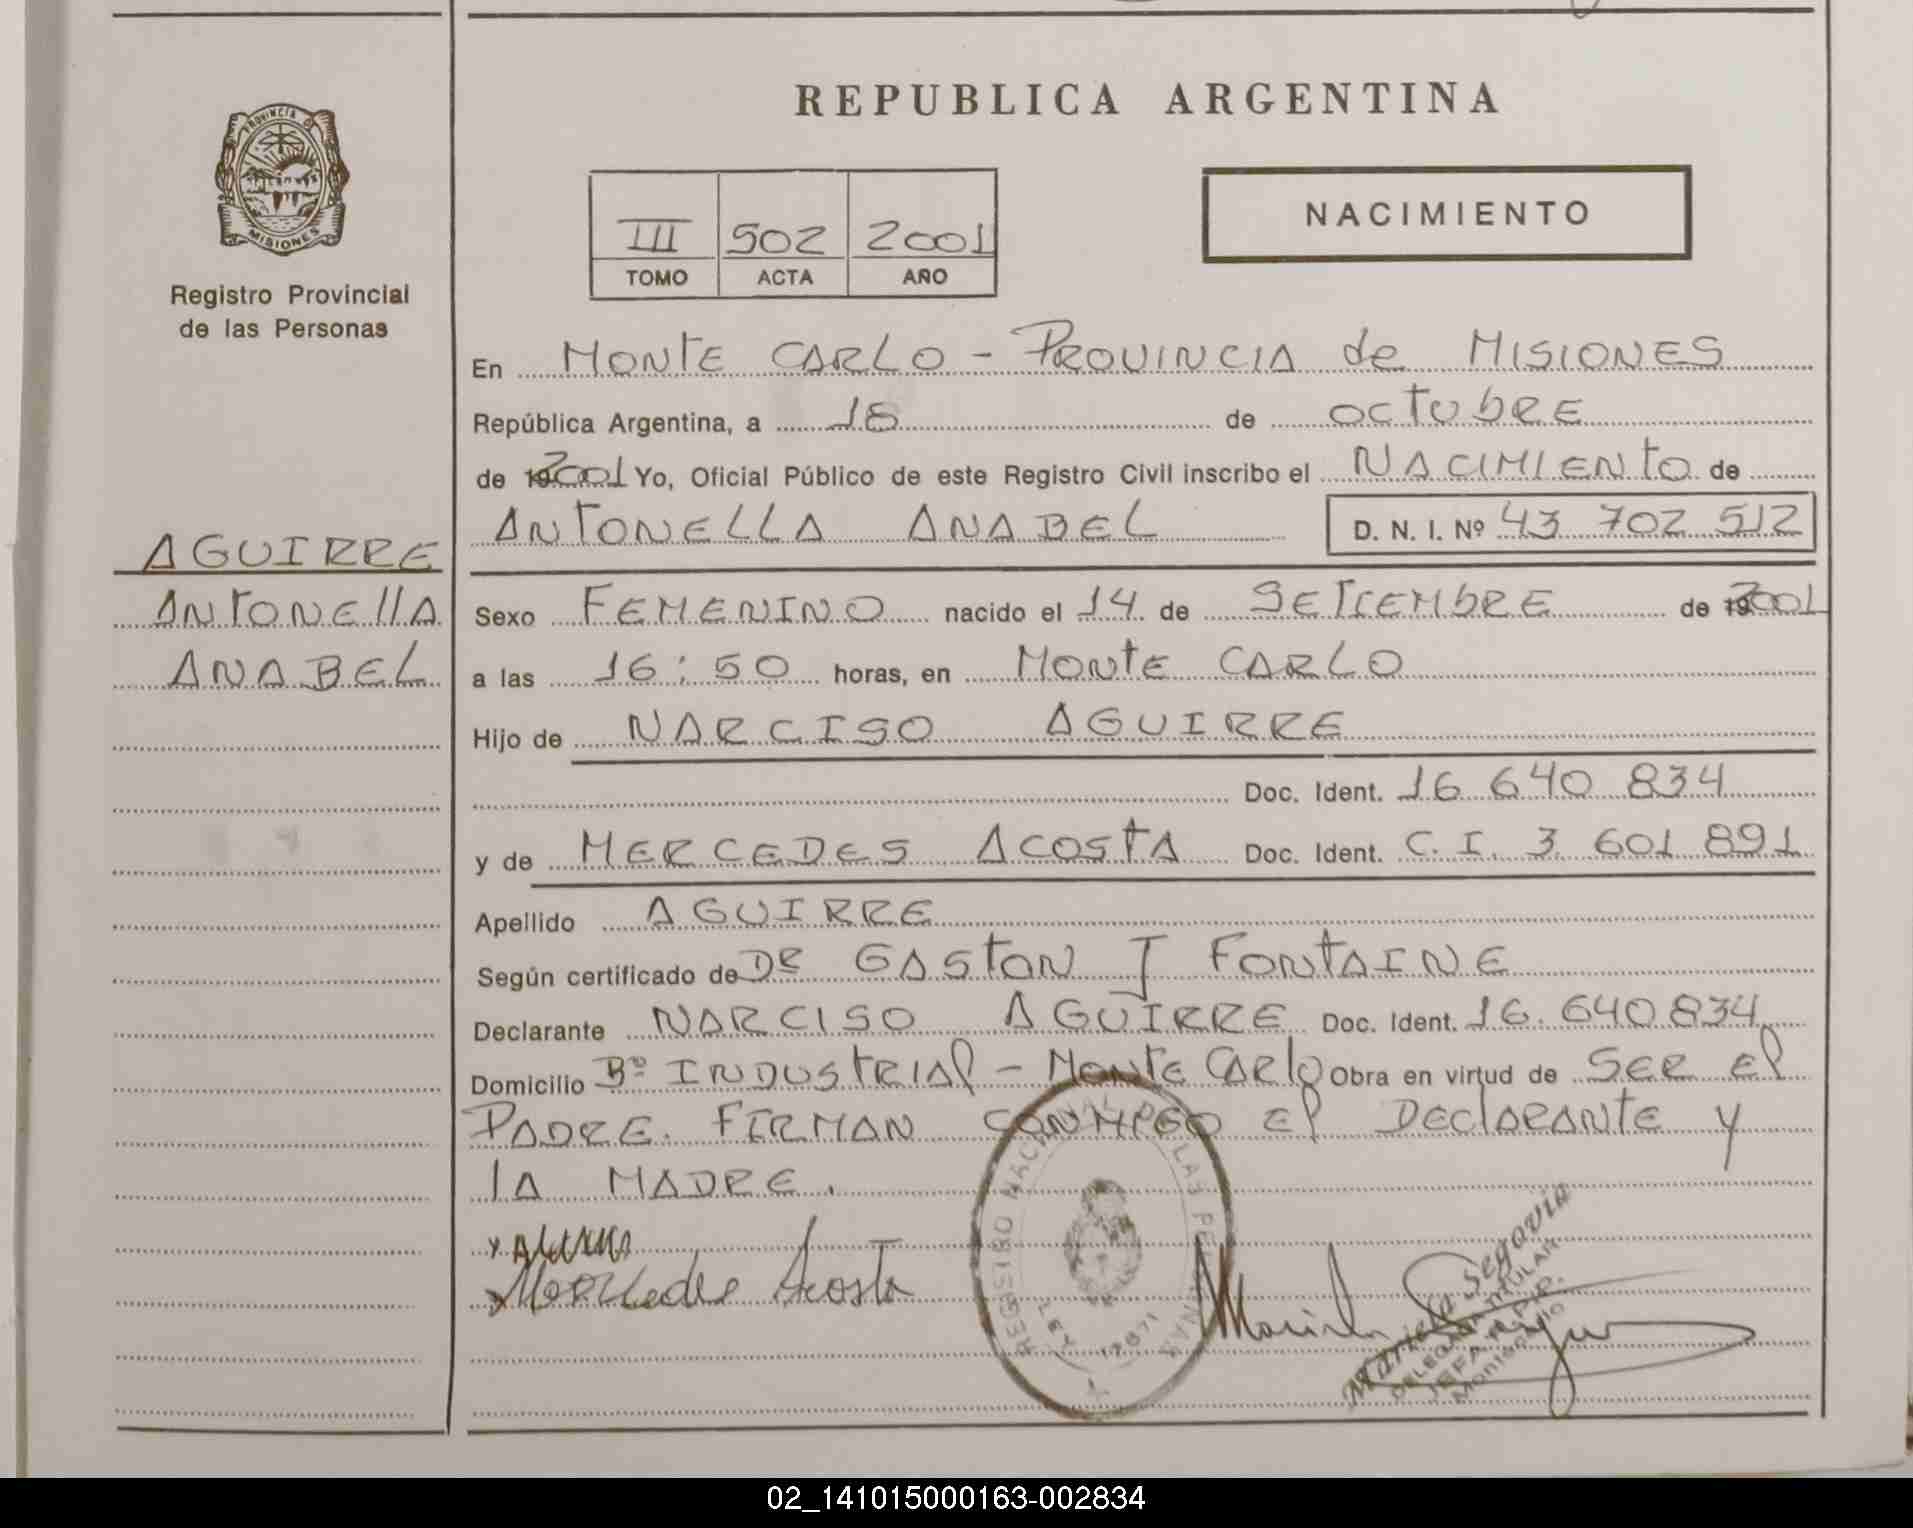 REPUBLICA ARGENTINA
PROVINCIA DE
MISIONES
Registro Provincial
de las Personas
III 502 2001
TOMO ACTA AÑO
NACIMIENTO
En MONTE CARLO - PROVINCIA de MISIONES
República Argentina, a 18 de octubRE
de 2001 Yo, Oficial Público de este Registro Civil inscribo el NACIMIENTO de
ANTONELLA ANABEL D. N. I. Nº 43 702 512
AGUIRRE
ANTONEllA
ANABEL
Sexo FEMENINO nacido el 14 de SETIEMbRE de 2001
a las 16:50 horas, en MONTE CARLO
Hijo de NARCISO AGUIRRE
Doc. Ident. 16 640 834
y de MERCEDES ACOSTA Doc. Ident. C. I. 3 601 891
Apellido AGUIRRE
Según certificado de DR GASTON J FONTAINE
Declarante NARCISO AGUIRRE Doc. Ident. 16.640.834
Domicilio Bº INDUSTRIAl - MONTE CARlO Obra en virtud de SER El
PADRE. FIRMAN CONMIGO El DEClARANTE y
lA MADRE.
Mercedes Acosta
REGISTRO NACIONAL DE LAS PERSONAS
LEY 17671
Mariela Segovia
DELEGADA TITULAR
JEFA R.P.P.
Montecarlo
02_141015000163-002834